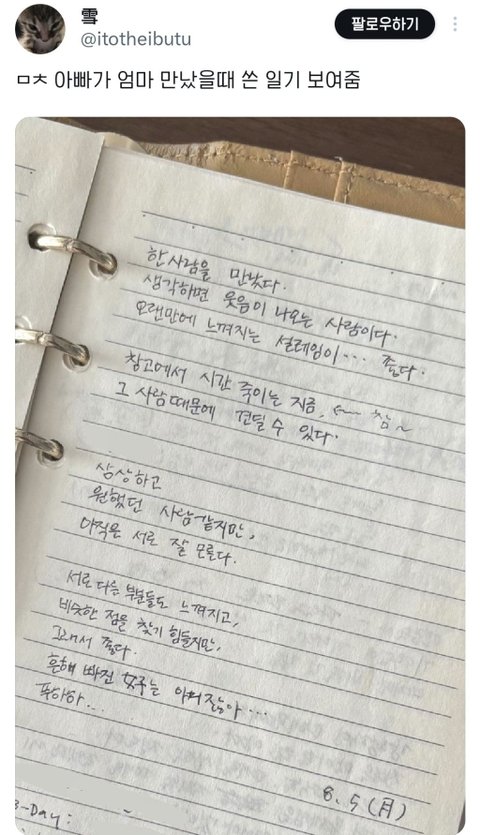 雪
@itotheibutu
팔로우하기
ㅁㅊ 아빠가 엄마 만났을때 쓴 일기 보여줌
한사람을 만났다.
생각하면 웃음이 나오는 사람이다.
오랜만에 느껴지는 설레임이... 좋다.
창고에서 시간 죽이는 지금, ← 참~
그 사람때문에 견딜 수 있다.
상상하고
원했던 사람같지만,
아직은 서로 잘 모른다.
서로 다른 부분들도 느껴지고,
비슷한 점을 찾기 힘들지만,
그래서 좋다.
흔해 빠진 는 아니잖아...
푸하하...
8. 5 (月)
-Day: